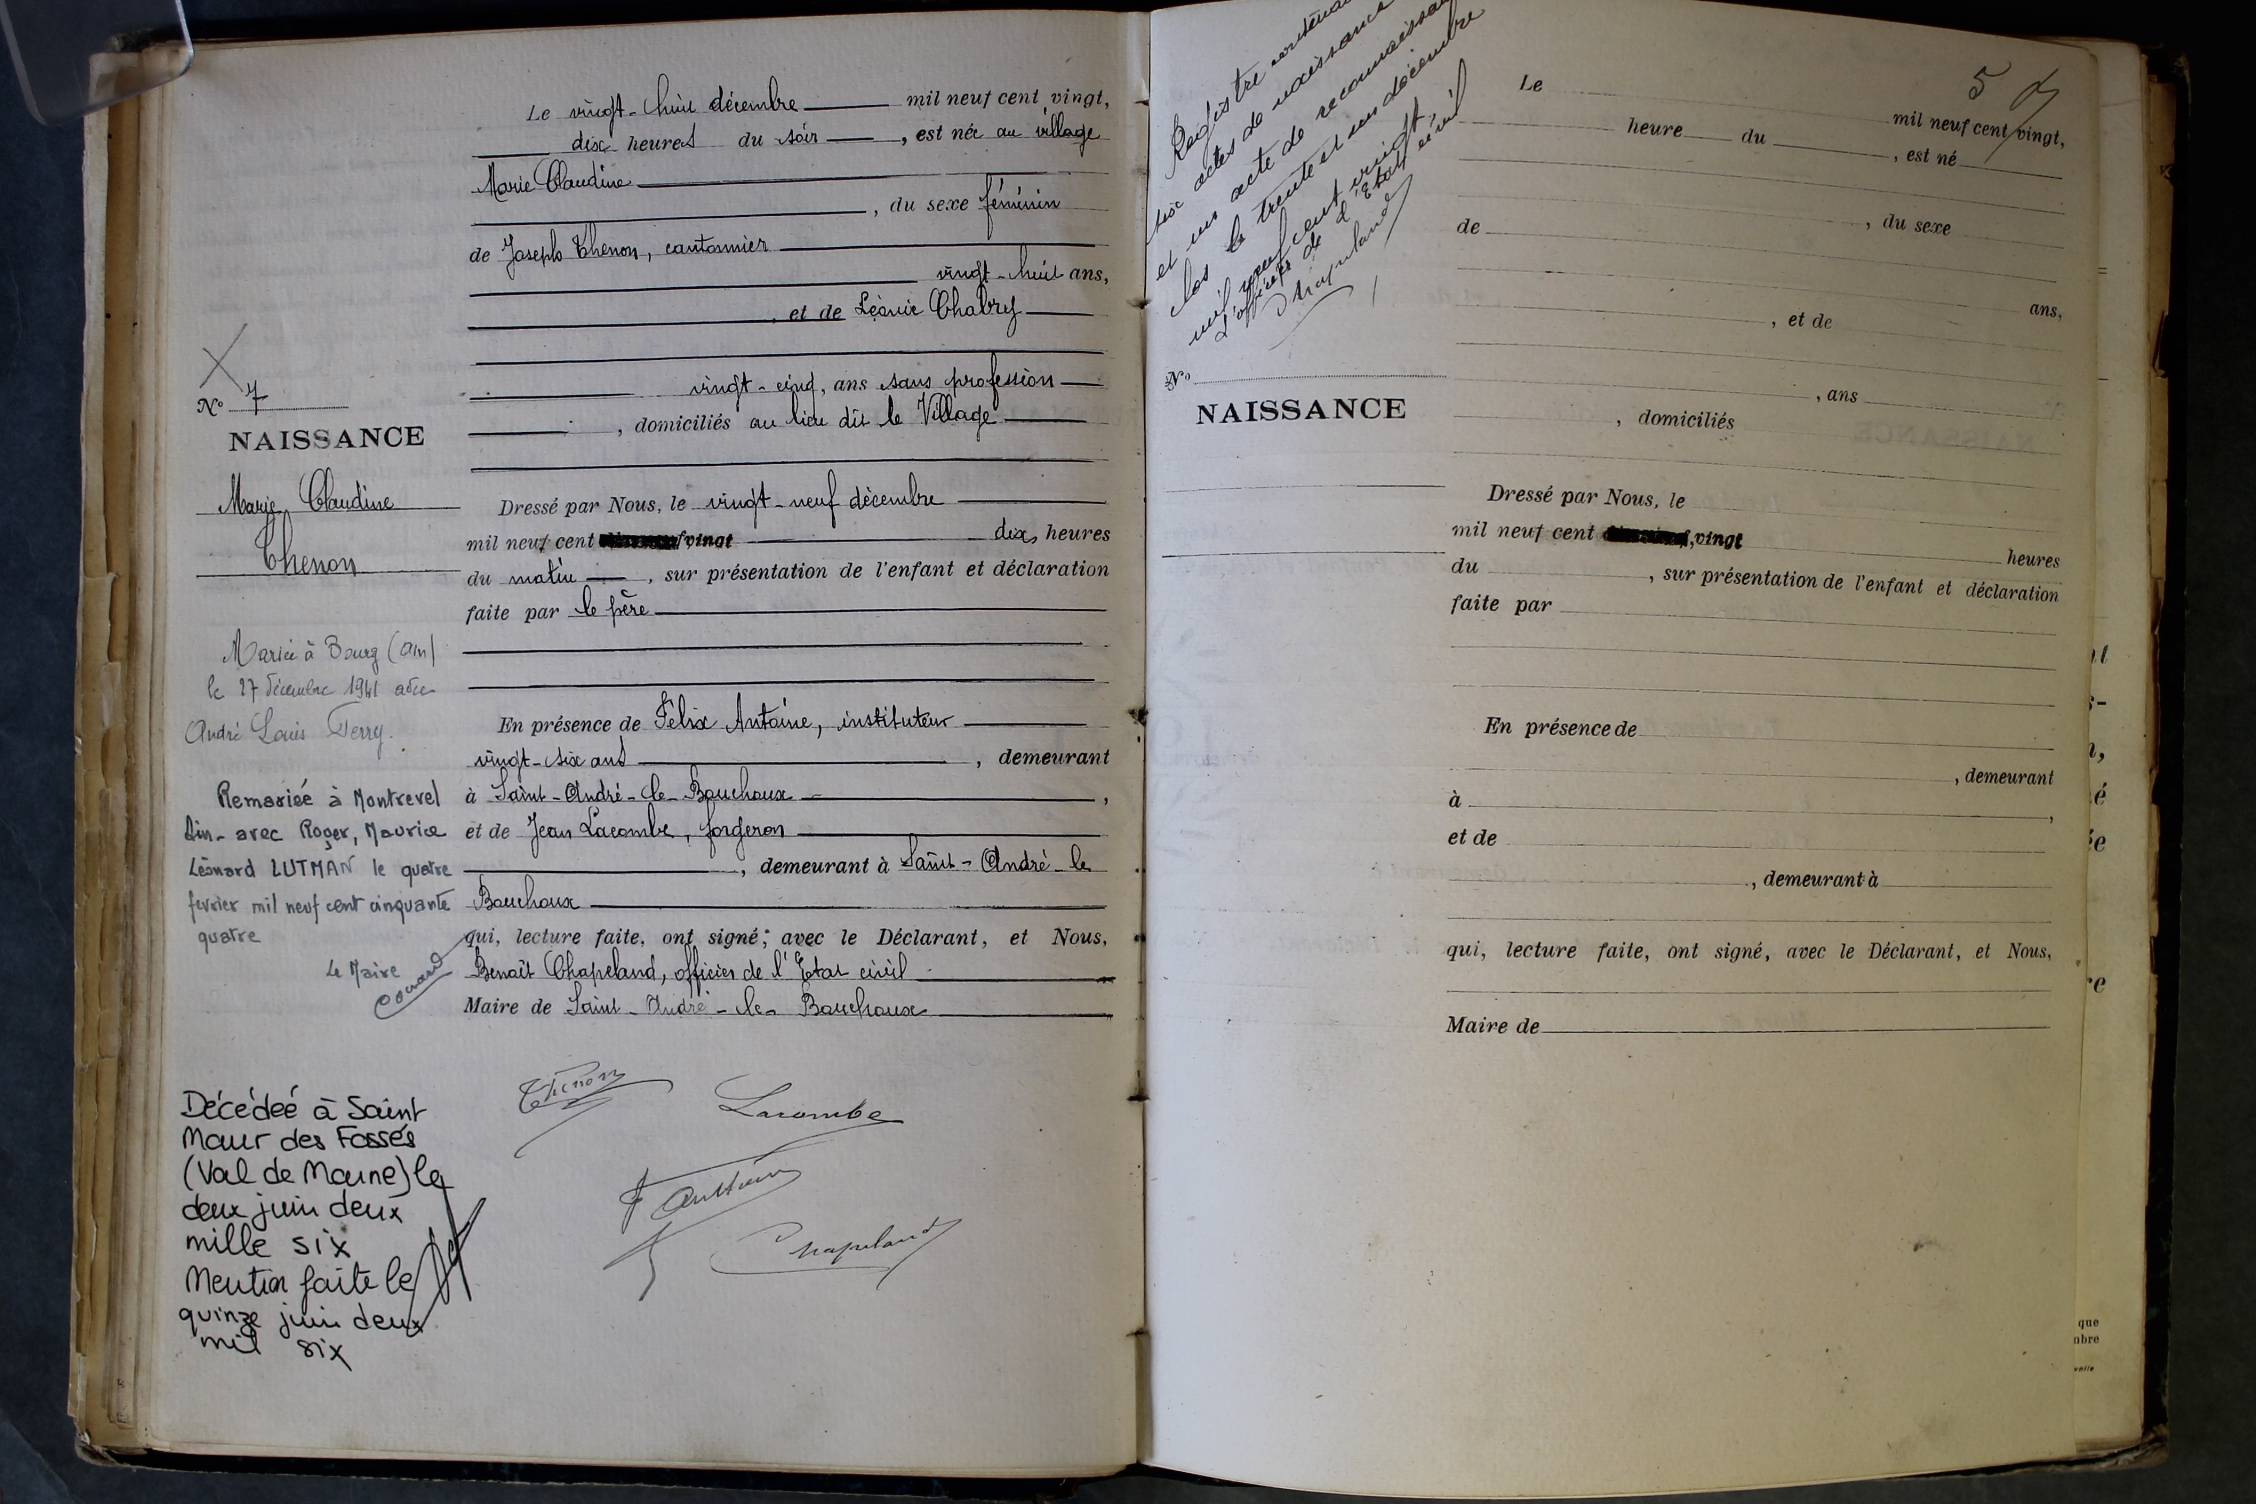 Le vingt-huit décembre mil neuf cent vingt,
dix heures du soir, est née au village
Marie Claudine
, du sexe féminin
de Joseph Thenon, cantonnier
vingt-huit ans,
, et de Léonie Chabry
vingt-cinq, ans sans profession
, domiciliés au lieu dit le Village
N° 7
NAISSANCE
Marie Claudine
Thenon
Dressé par Nous, le vingt-neuf décembre
mil neuf cent vingt dix heures
du matin, sur présentation de l'enfant et déclaration
faite par le père
Mariée à Bourg (Ain)
le 27 décembre 1941 avec
André Louis Ferry.
En présence de Félix Antoine, instituteur
vingt-six ans, demeurant
à Saint-André-le-Bouchoux,
et de Jean Lacombe, forgeron
, demeurant à Saint-André-le
Bouchoux
qui, lecture faite, ont signé, avec le Déclarant, et Nous,
Benoît Chapeland, officier de l'Etat civil
Maire de Saint-André-le-Bouchoux
Remariée à Montrevel
Ain- avec Roger, Maurice
Léonard LUTMAN le quatre
fevrier mil neuf cent cinquante
quatre
Le Maire
Thenon
Lacombe
F Antoine
Chapeland
Décédeé à Saint
Maur des Fossés
(Val de Marne) le
deux juin deux
mille six
Mention faite le
quinze juin deux
mil six
Registre
actes de naissance
et un acte de reconnaissance
clos le trente et un décembre
mil neuf cent vingt,
L'officier de l'Etat civil
Chapeland
5
Le
mil neuf cent vingt,
heure du , est né
, du sexe
de
ans,
, et de
, ans
, domiciliés
N°
NAISSANCE
Dressé par Nous, le
mil neuf cent vingt
heures
du , sur présentation de l'enfant et déclaration
faite par
En présence de
, demeurant
à ,
et de
, demeurant à
qui, lecture faite, ont signé, avec le Déclarant, et Nous,
Maire de
que